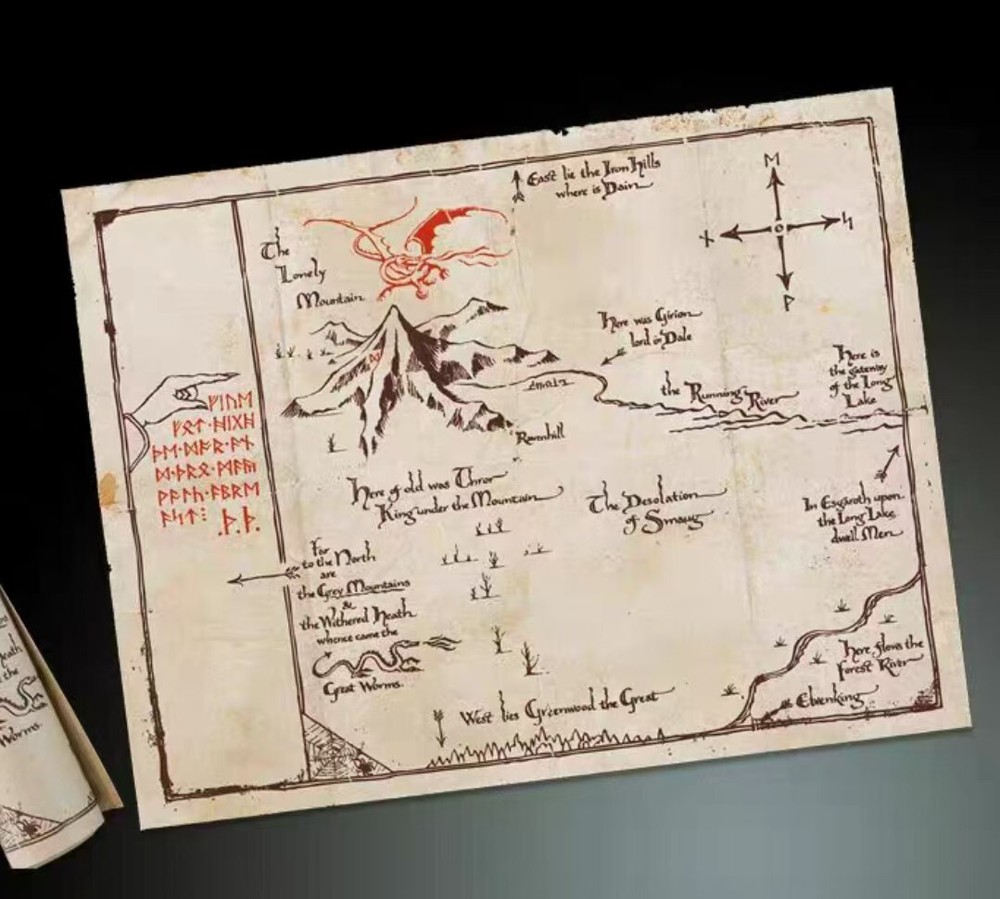 East lie the Iron Hills
where is Dain
ᛖ
ᚾ
ᛋ
ᚹ
The
Lonely
Mountain
ᛞ
Here was Girion
lord in Dale
Here is
the gateway
of the Long
Lake
the Running River
Ravenhill
ᚠᛁᚢᛖ
ᚠᛟᛏ·ᚻᛁᚷᚻ
ᚦᛖ·ᛞᚩᚱ·ᚪᚾ
ᛞ·ᚦᚱᛟ·ᛗᚪᚣ
ᚹᚪᛚᚳ·ᚪᛒᚱᛖ
ᚪᛋᛏ⁝
.ᚦ.ᚦ.
Here of old was Thror
King under the Mountain
The Desolation
of Smaug
In Esgaroth upon
the Long Lake
dwell Men
Far
to the North
are
the Grey Mountains
&
the Withered Heath
whence came the
Great Worms.
Here flows the
Forest River
Elvenking
West lies Greenwood the Great
eath
the
Worms.